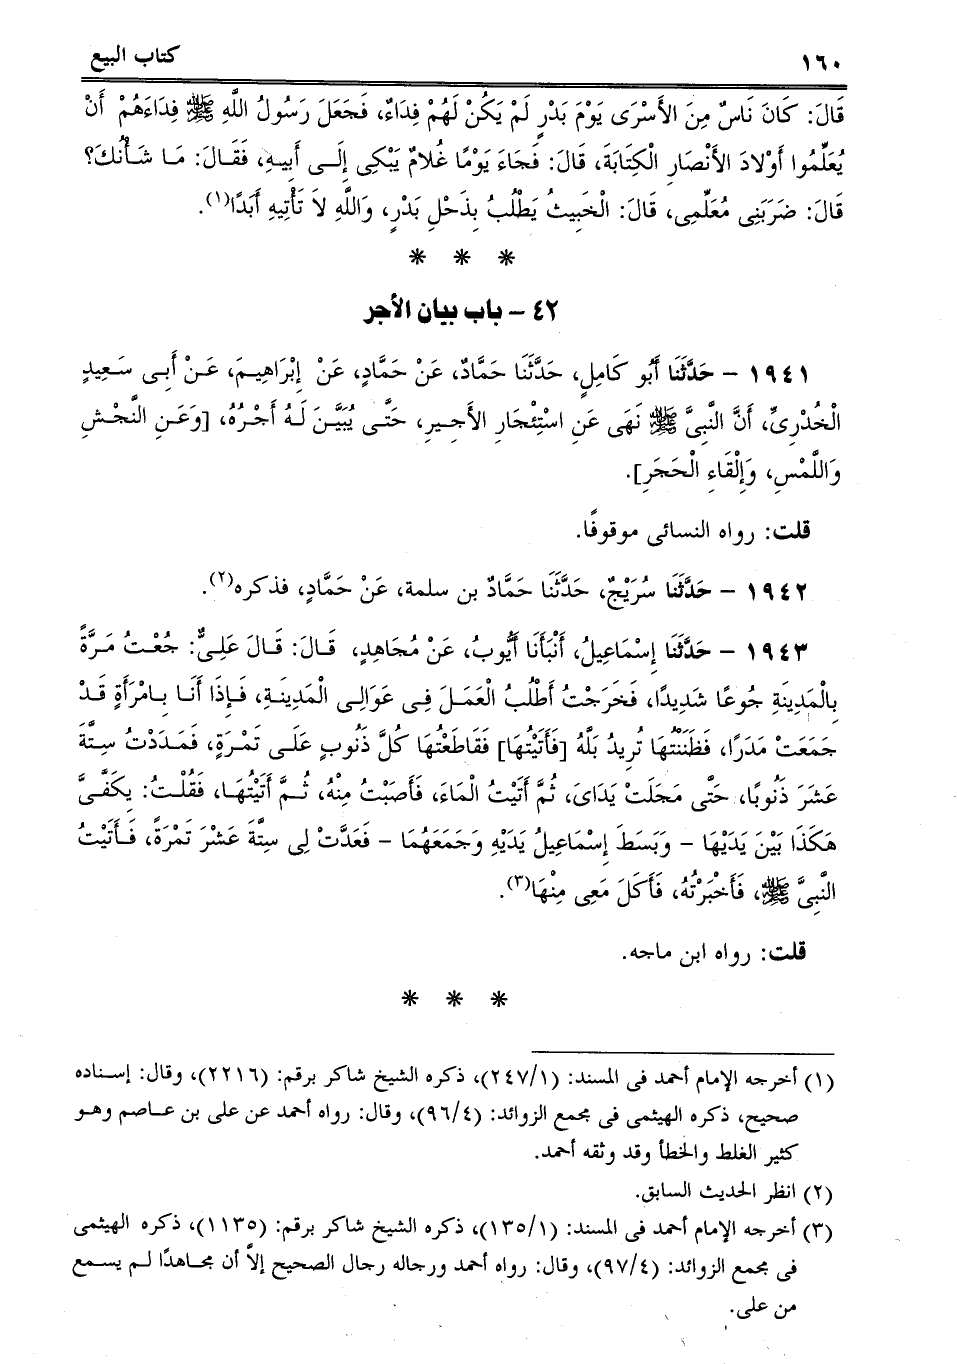 ١٦٠ كتاب البيع
قَالَ: كَانَ نَاسٌ مِنَ الأَسْرَى يَوْمَ بَدْرٍ لَمْ يَكُنْ لَهُمْ فِدَاءٌ، فَجَعَلَ رَسُولُ اللَّهِ ﷺ فِدَاءَهُمْ أَنْ
يُعَلِّمُوا أَوْلادَ الأَنْصَارِ الْكِتَابَةَ، قَالَ: فَجَاءَ يَوْمًا غُلامٌ يَبْكِى إِلَى أَبِيهِ، فَقَالَ: مَا شَأْنُكَ؟
قَالَ: ضَرَبَنِى مُعَلِّمِى، قَالَ: الْخَبِيثُ يَطْلُبُ بِذَحْلِ بَدْرٍ، وَاللَّهِ لاَ تَأْتِيهِ أَبَدًا(١).
* * *
٤٢ – باب بيان الأجر
١٩٤١ – حَدَّثَنَا أَبُو كَامِلٍ، حَدَّثَنَا حَمَّادٌ، عَنْ حَمَّادٍ، عَنْ إِبْرَاهِيمَ، عَنْ أَبِى سَعِيدٍ
الْخُدْرِىِّ، أَنَّ النَّبِىَّ ﷺ نَهَى عَنِ اسْتِئْجَارِ الأَجِيرِ، حَتَّى يُبَيَّنَ لَهُ أَجْرُهُ، [وَعَنِ النَّجْشِ
وَاللَّمْسِ، وَإِلْقَاءِ الْحَجَرِ].
قلت: رواه النسائى موقوفًا.
١٩٤٢ – حَدَّثَنَا سُرَيْجٌ، حَدَّثَنَا حَمَّادٌ بن سلمة، عَنْ حَمَّادٍ، فذكره(٢).
١٩٤٣ – حَدَّثَنَا إِسْمَاعِيلُ، أَنْبَأَنَا أَيُّوبُ، عَنْ مُجَاهِدٍ، قَالَ: قَالَ عَلِىٌّ: جُعْتُ مَرَّةً
بِالْمَدِينَةِ جُوعًا شَدِيدًا، فَخَرَجْتُ أَطْلُبُ الْعَمَلَ فِى عَوَالِى الْمَدِينَةِ، فَإِذَا أَنَا بِامْرَأَةٍ قَدْ
جَمَعَتْ مَدَرًا، فَظَنَنْتُهَا تُرِيدُ بَلَّهُ [فَأَتَيْتُهَا] فَقَاطَعْتُهَا كُلَّ ذَنُوبٍ عَلَى تَمْرَةٍ، فَمَدَدْتُ سِتَّةَ
عَشَرَ ذَنُوبًا، حَتَّى مَجَلَتْ يَدَاىَ، ثُمَّ أَتَيْتُ الْمَاءَ، فَأَصَبْتُ مِنْهُ، ثُمَّ أَتَيْتُهَا، فَقُلْتُ: بِكَفَّىَّ
هَكَذَا بَيْنَ يَدَيْهَا – وَبَسَطَ إِسْمَاعِيلُ يَدَيْهِ وَجَمَعَهُمَا – فَعَدَّتْ لِى سِتَّةَ عَشْرَ تَمْرَةً، فَأَتَيْتُ
النَّبِىَّ ﷺ، فَأَخْبَرْتُهُ، فَأَكَلَ مَعِى مِنْهَا(٣).
قلت: رواه ابن ماجه.
* * *
(١) أخرجه الإمام أحمد فى المسند: (٢٤٧/١)، ذكره الشيخ شاكر برقم: (٢٢١٦)، وقال: إسناده
صحيح، ذكره الهيثمى فى مجمع الزوائد: (٩٦/٤)، وقال: رواه أحمد عن على بن عاصم وهو
كثير الغلط والخطأ وقد وثقه أحمد.
(٢) انظر الحديث السابق.
(٣) أخرجه الإمام أحمد فى المسند: (١٣٥/١)، ذكره الشيخ شاكر برقم: (١١٣٥)، ذكره الهيثمى
فى مجمع الزوائد: (٩٧/٤)، وقال: رواه أحمد ورجاله رجال الصحيح إلاَّ أن مجاهدًا لم يسمع
من على.